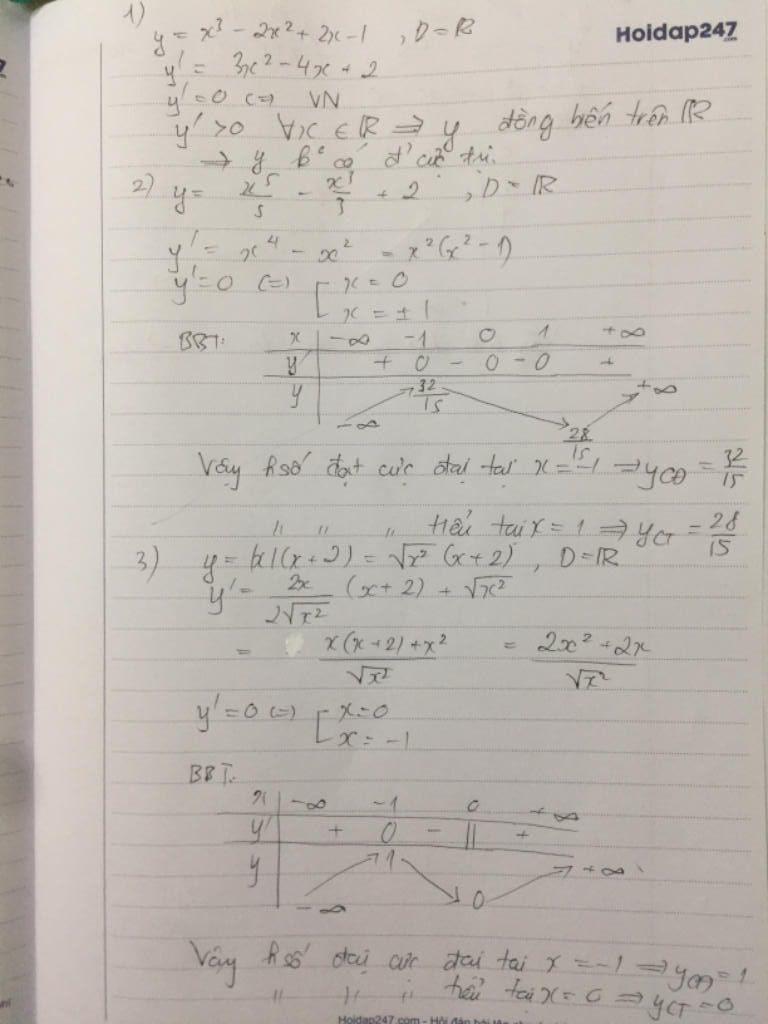 1)
Hoidap247
y = x³ - 2x² + 2x - 1 , D = ℝ
y' = 3x² - 4x + 2
y' = 0 (=) VN
y' > 0 ∀x ∈ ℝ ⇒ y đồng biến trên ℝ
→ y k° có đ' cực trị.
2) y = x⁵/5 - x³/3 + 2 , D = ℝ
y' = x⁴ - x² = x²(x² - 1)
y' = 0 (=) [ x = 0
x = ± 1
BBT: x | -∞ -1 0 1 +∞
y' | + 0 - 0 - 0 +
y | -∞ 32/15 28/15 +∞
Vậy h số đạt cực đại tại x = -1 ⇒ yCĐ = 32/15
" " " tiểu tại x = 1 ⇒ yCT = 28/15
3) y = |x|(x + 2) = √x² (x + 2) , D = ℝ
y' = 2x/2√x² (x + 2) + √x²
= x(x + 2) + x²/√x² = 2x² + 2x/√x²
y' = 0 (=) [ x = 0
x = -1
BBT:
x | -∞ -1 0 +∞
y' | + 0 - || +
y | -∞ 1 0 +∞
Vậy h số đạt cực đại tại x = -1 ⇒ yCĐ = 1
" " " tiểu tại x = 0 ⇒ yCT = 0